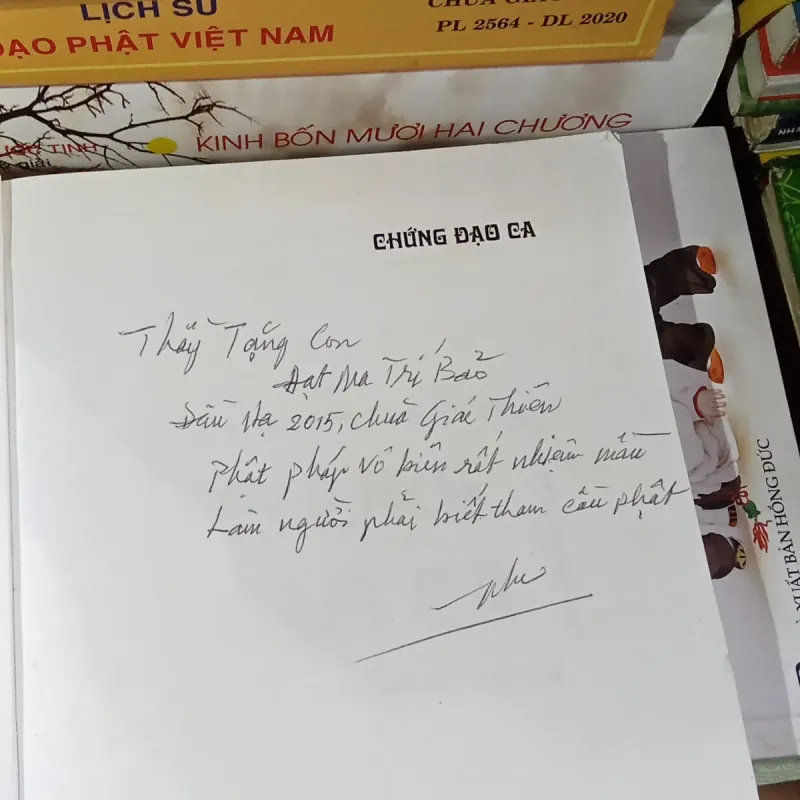 LỊCH SỬ
ĐẠO PHẬT VIỆT NAM
PL 2564 - DL 2020
KINH BỐN MƯƠI HAI CHƯƠNG
CHỨNG ĐẠO CA
Thầy Tặng Con
Đạt Ma Trí Bảo
Đầu Hạ 2015, chùa Giác Thiên
Phật pháp vô biên rất nhiệm mầu
Làm người phải biết tham cầu phật
XUẤT BẢN HỒNG ĐỨC